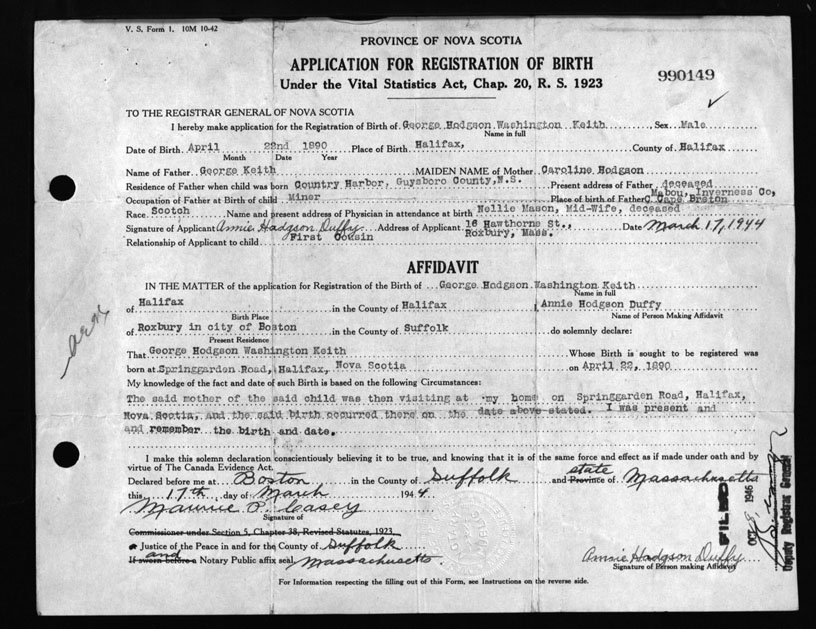 V. S. Form 1. 10M 10-42
PROVINCE OF NOVA SCOTIA
APPLICATION FOR REGISTRATION OF BIRTH
Under the Vital Statistics Act, Chap. 20, R. S. 1923
990149
TO THE REGISTRAR GENERAL OF NOVA SCOTIA
I hereby make application for the Registration of Birth of George Hodgson Washington Keith Sex Male
Name in full
Date of Birth April 22nd 1890 Place of Birth Halifax, County of Halifax
Month Date Year
Name of Father George Keith MAIDEN NAME of Mother Caroline Hodgson
Residence of Father when child was born Country Harbor, Guysboro County, N.S. Present address of Father deceased
Occupation of Father at Birth of child Miner Place of birth of Father Mabou, Inverness Co, Cape Breton
Race Scotch Name and present address of Physician in attendance at birth Nellie Mason, Mid-Wife, deceased
Signature of Applicant Annie Hodgson Duffy Address of Applicant 16 Hawthorne St., Roxbury, Mass. Date March 17, 1944
Relationship of Applicant to child First Cousin
AFFIDAVIT
IN THE MATTER of the application for Registration of the Birth of George Hodgson Washington Keith
Name in full
of Halifax in the County of Halifax I, Annie Hodgson Duffy
Birth Place Name of Person Making Affidavit
of Roxbury in city of Boston in the County of Suffolk do solemnly declare:
Present Residence
That George Hodgson Washington Keith Whose Birth is sought to be registered was
born at Springgarden Road, Halifax, Nova Scotia on April 22, 1890
My knowledge of the fact and date of such Birth is based on the following Circumstances:
The said mother of the said child was then visiting at my home on Springgarden Road, Halifax,
Nova Scotia, and the said birth occurred there on the date above stated. I was present and
and remember the birth and date.
I make this solemn declaration conscientiously believing it to be true, and knowing that it is of the same force and effect as if made under oath and by
virtue of The Canada Evidence Act.
Declared before me at Boston in the County of Suffolk and Province state of Massachusetts
this 17th day of March 1944
Maurice P. Casey
Signature of
Commissioner under Section 5, Chapter 38, Revised Statutes, 1923
Justice of the Peace in and for the County of Suffolk
If sworn before a and Notary Public affix seal Massachusetts.
Annie Hodgson Duffy
Signature of Person making Affidavit
For Information respecting the filling out of this Form, see Instructions on the reverse side.
FILED
1946
Deputy Registrar General